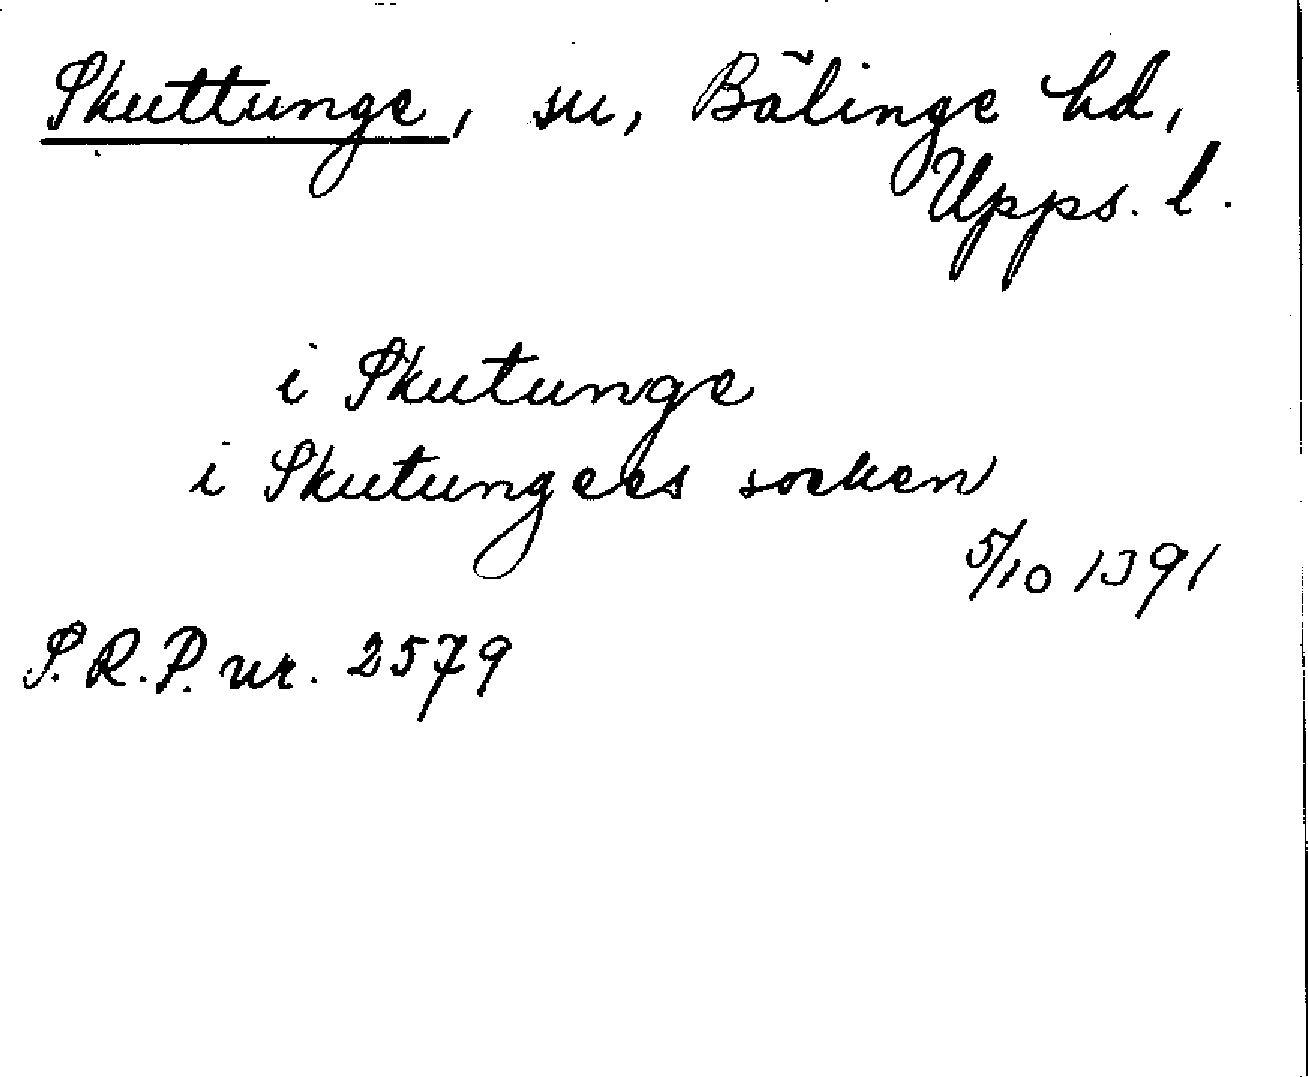 Skuttunge, sn, Bälinge hd,
Upps. l.
i Skutunge
i Skutungees socken
5/10 1391
S.R.P. nr. 2579